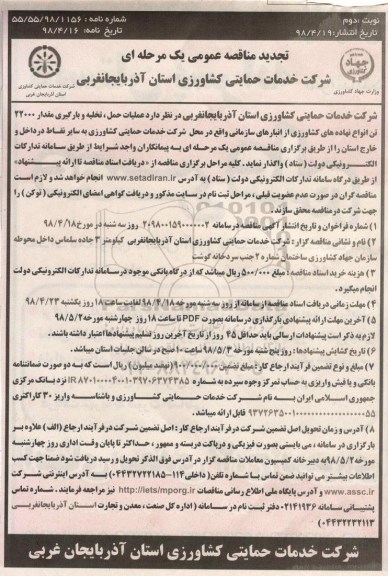 نوبت: دوم
تاریخ انتشار: ۹۸/۴/۱۹
شماره نامه: ۵۵/۵۵/۹۸/۱۱۵۶
تاریخ نامه: ۹۸/۴/۱۶
تجدید مناقصه عمومی یک مرحله ای
شرکت خدمات حمایتی کشاورزی استان آذربایجانغربی
وزارت جهاد کشاورزی
شرکت خدمات حمایتی کشاورزی
استان آذربایجان غربی
شرکت خدمات حمایتی کشاورزی استان آذربایجانغربی در نظر دارد عملیات حمل، تخلیه و بارگیری مقدار ۲۲۰۰۰
تن انواع نهاده های کشاورزی از انبارهای سازمانی واقع در محل شرکت خدمات حمایتی کشاورزی به سایر نقاط در داخل و
خارج استان را از طریق برگزاری مناقصه عمومی یک مرحله ای به پیمانکاران واجد شرایط از طریق سامانه تدارکات
الکترونیکی دولت (ستاد) واگذار نماید. کلیه مراحل برگزاری مناقصه از دریافت اسناد مناقصه تا ارائه پیشنهاد
از طریق درگاه سامانه تدارکات الکترونیکی دولت (ستاد) به آدرس www.setadiran.ir انجام خواهد شد و لازم است
مناقصه گران در صورت عدم عضویت قبلی، مراحل ثبت نام در سایت مذکور و دریافت گواهی امضای الکترونیکی (توکن) را
جهت شرکت در مناقصه محقق سازند.
۱) شماره فراخوان و تاریخ انتشار آگهی مناقصه در سامانه ۲۰۹۸۰۰۱۵۹۰۰۰۰۰۲ روز سه شنبه در مورخ ۹۸/۴/۱۸
۲) نام و نشانی مناقصه گزار: شرکت خدمات حمایتی کشاورزی استان آذربایجانغربی کیلومتر ۳ جاده سلماس داخل محوطه
سازمان جهاد کشاورزی ساختمان شماره ۲ جنب سردخانه گوشت
۳) هزینه خرید اسناد مناقصه: مبلغ ۵۰۰/۰۰۰ ریال میباشد که از درگاه بانکی موجود در سامانه تدارکات الکترونیکی دولت
انجام میگیرد.
۴) مهلت زمانی دریافت اسناد مناقصه از سامانه از روز سه شنبه مورخه ۹۸/۴/۱۸ لغایت ساعت ۱۸ روز یکشنبه ۹۸/۴/۲۳
۵) آخرین مهلت ارائه پیشنهادی بارگذاری در سامانه بصورت PDF تا ساعت ۱۸ روز چهارشنبه مورخ ۹۸/۵/۲
لازم به ذکر است پیشنهادات ارسالی باید حداقل ۴۵ روز از تاریخ آخرین روز تسلیم پیشنهادها اعتبار داشته باشند.
۶) تاریخ گشایش پیشنهادها: روز پنج شنبه مورخ ۹۸/۵/۳ ساعت ۱۰ صبح در سالن جلسات استان میباشد.
۷) مبلغ و نوع تضمین فرآیند ارجاع کار: مبلغ تضمین ۹۰۰/۰۰۰/۰۰۰ (نهصد میلیون) ریال است که به دو صورت ضمانتنامه
بانکی و یا فیش واریزی به حساب تمرکز وجوه سپرده به شماره نزد بانک مرکزی
جمهوری اسلامی ایران به نام شرکت خدمات حمایتی کشاورزی و باشناسه واریز ۳۰ کاراکتری
قابل ارائه میباشد.
۸) آدرس و زمان تحویل اصل تضمین شرکت در فرآیند ارجاع کار: اصل تضمین شرکت در فرآیند ارجاع (الف) علاوه بر
بارگزاری در سامانه، می بایستی بصورت فیزیکی و درپاکت دربسته و ممهور، حداکثر تا پایان وقت اداری روز چهارشنبه
مورخه ۹۸/۵/۲ به دبیرخانه کمیسیون معاملات مناقصه گزار در آدرس فوق الذکر تحویل و رسید دریافت شود ضمنا جهت کسب
اطلاعات بیشتر می توانید ضمن تماس با شماره تلفن (داخلی ۱۱۴-۰۴۴۳۲۷۲۲۱۸۵) به آدرس اینترنتی شرکت
www.assc.ir و آدرس پایگاه ملی اطلاع رسانی مناقصات http://iets/mporg.ir نیز مراجعه فرمایند. شماره تماس
پشتیبانی سامانه ۰۲۱۴۱۹۳۴ دفتر ثبت نام در سامانه (اداره کل صنعت، معدن و تجارت استان آذربایجانغربی
۰۴۴۳۲۲۳۲۱۱۳)
شرکت خدمات حمایتی کشاورزی استان آذربایجان غربی